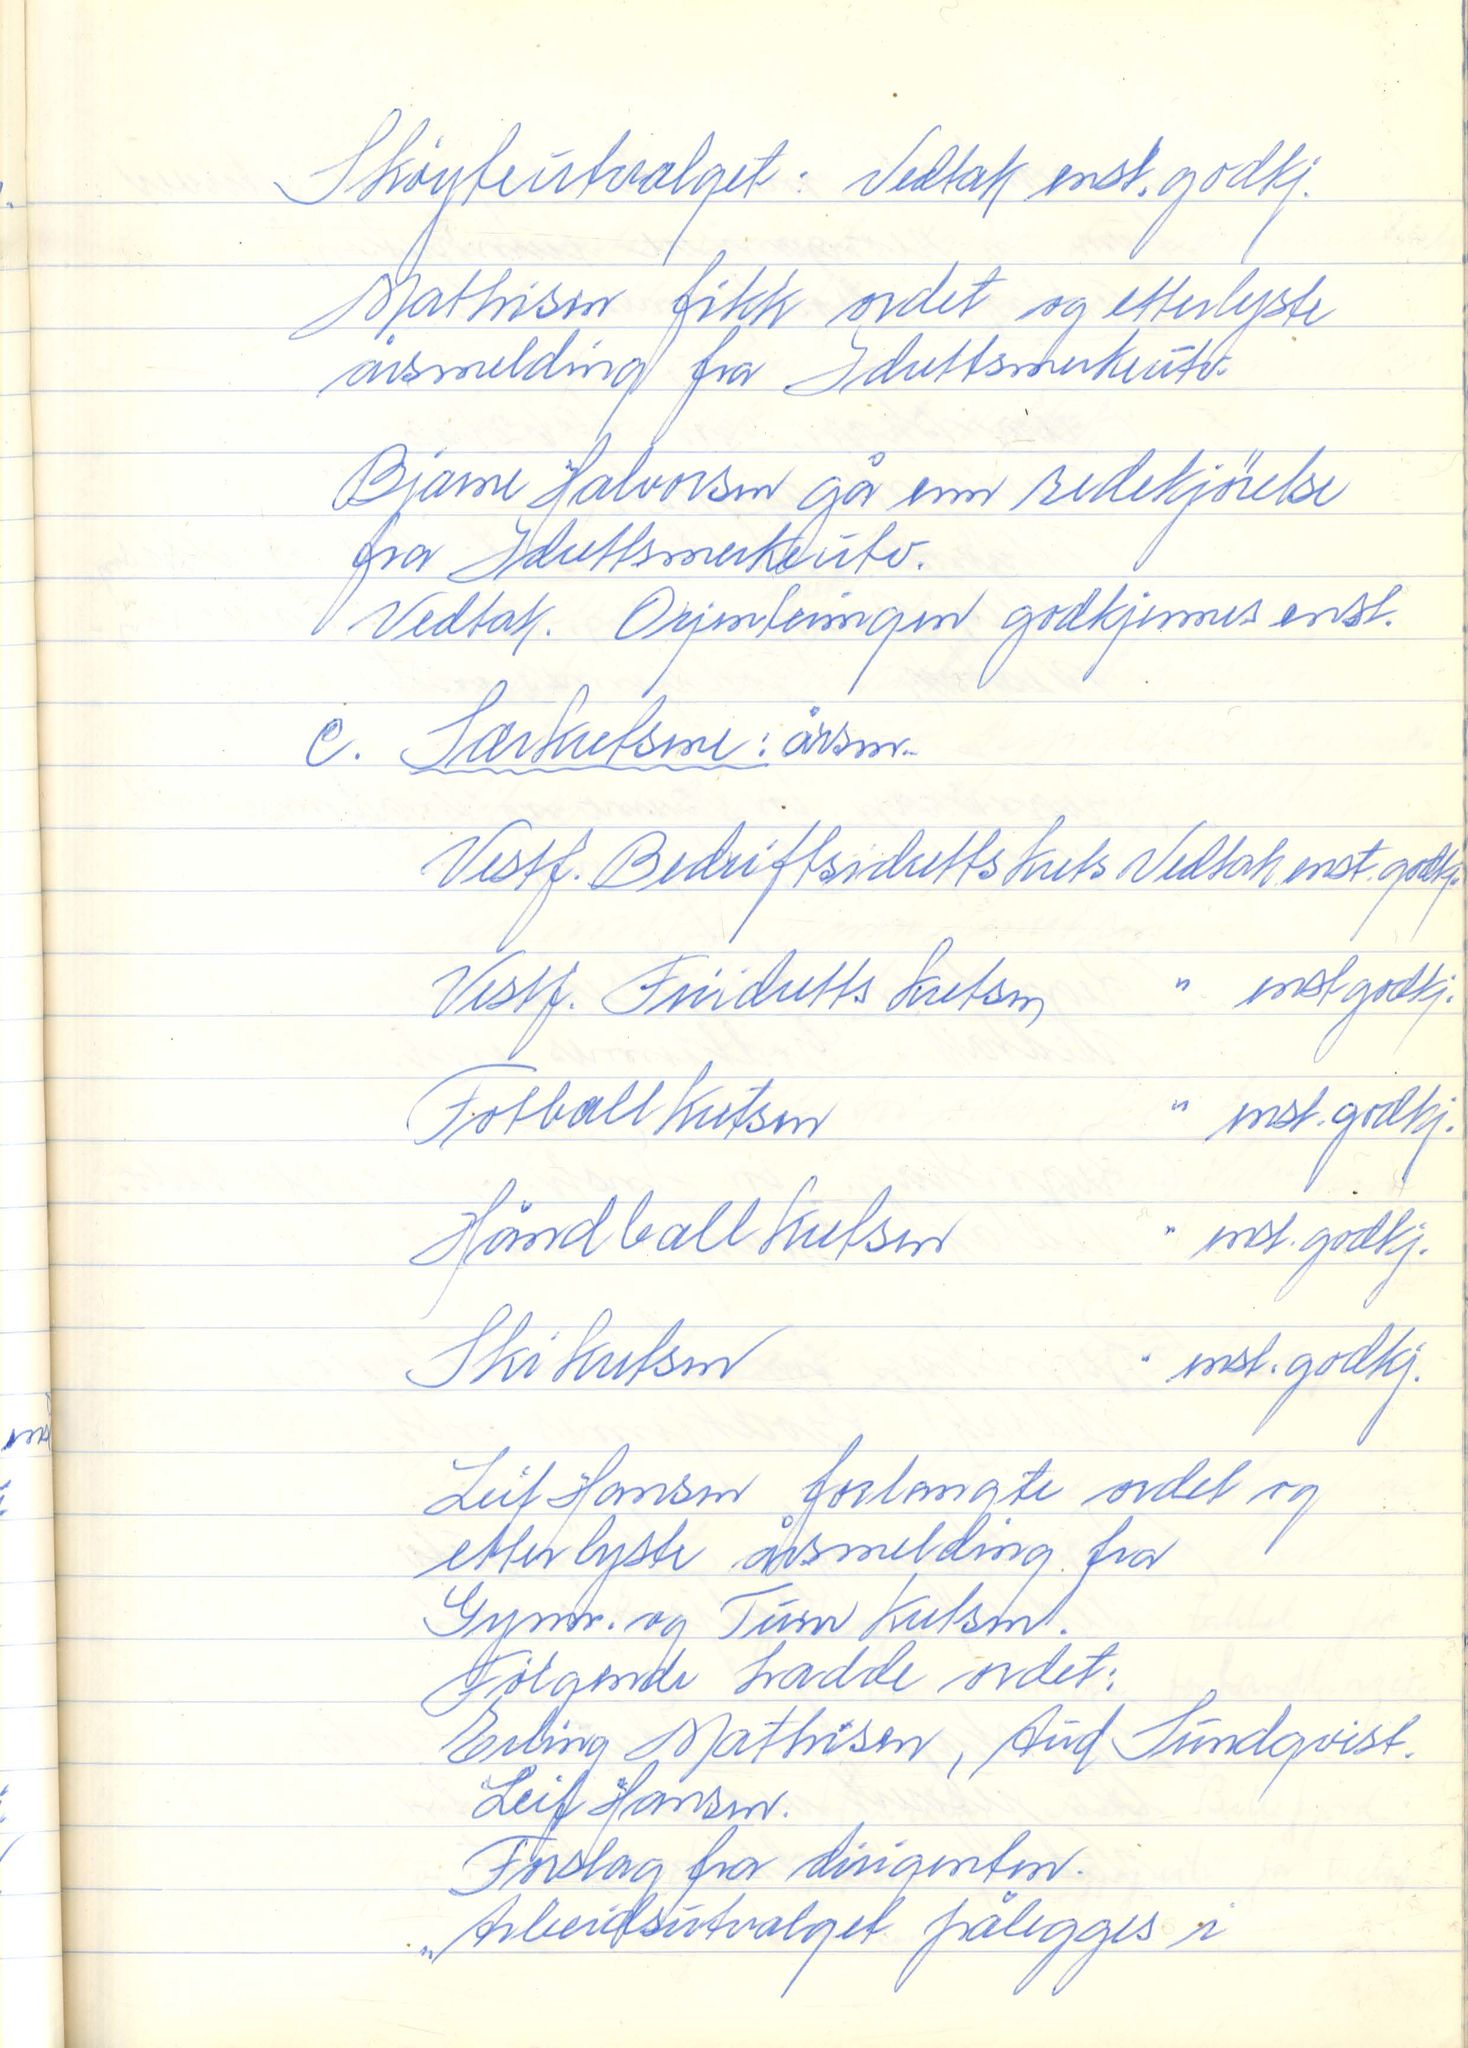 Skøyteutvalget: Vedtak enst. godkj.
Mathisen fikk ordet og etterlyste
årsmelding fra Idrettsmerkeutv.
Bjarne Halvorsen gå enn redekjörelse
fra Idrettsmerkeutv.
Vedtak. Orjenteringen godkjennes enst.
c. Særkretsene: årsm.
Vestf. Bedriftsidretts krets Vedtak enst. godkj.
Vestf. Friidretts kretsen " enst godkj.
Fotballkretsen " enst. godkj.
Håndballkretsen " enst. godkj.
Skikretsen " enst. godkj.
Leif Hansen forlangte ordet og
etterlyste årsmelding fra
Gymn. og Turn kretsen.
Følgende hadde ordet:
Erling Mathisen, Aud Sundqvist.
Leif Hansen.
Forslag fra dirigenten.
"Arbeidsutvalget pålegges i